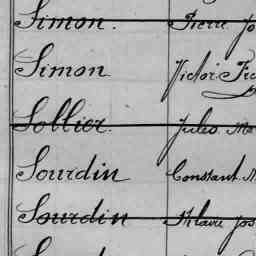 Simon. Pierre Jo
Simon Victor Fra
Sollier. Jules Ma
Sourdin Constant A
Sourdin Hilaire Jos